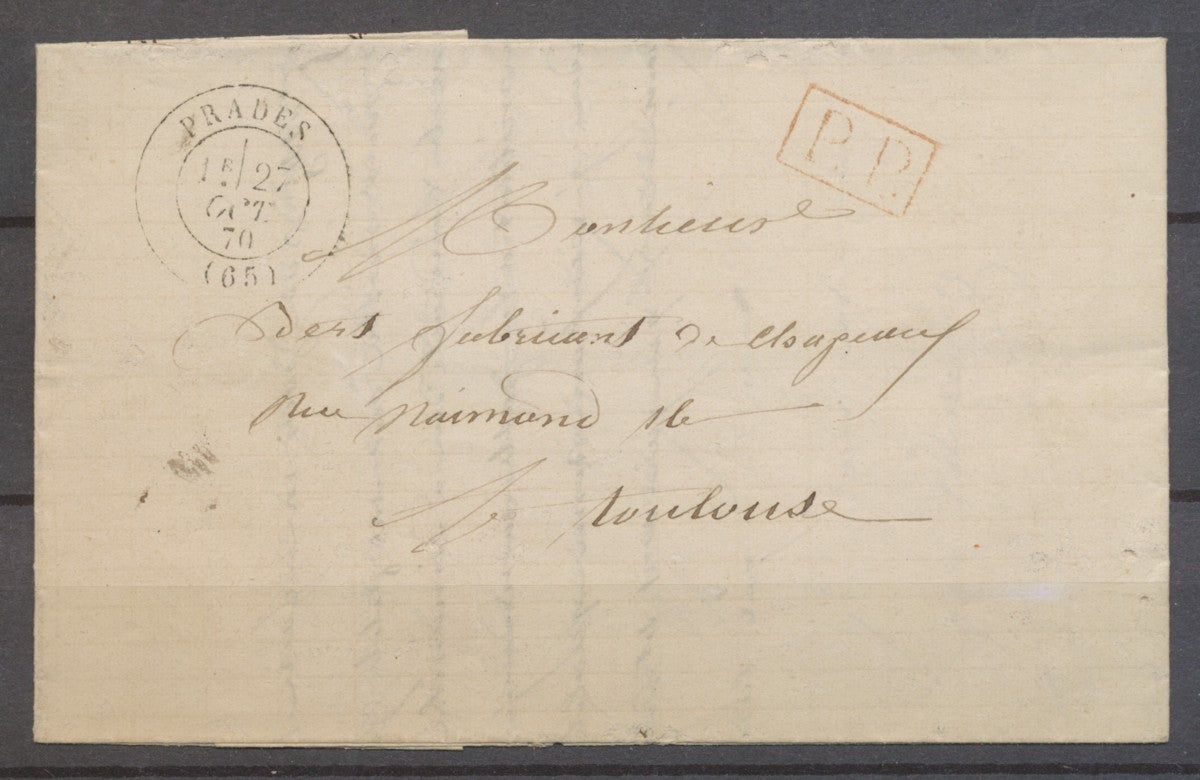 PRADES
1E/27
OCT.
70
(65)
P.P.
Monsieur
fabricant de chapeaux
Rue Raimond
toulouse